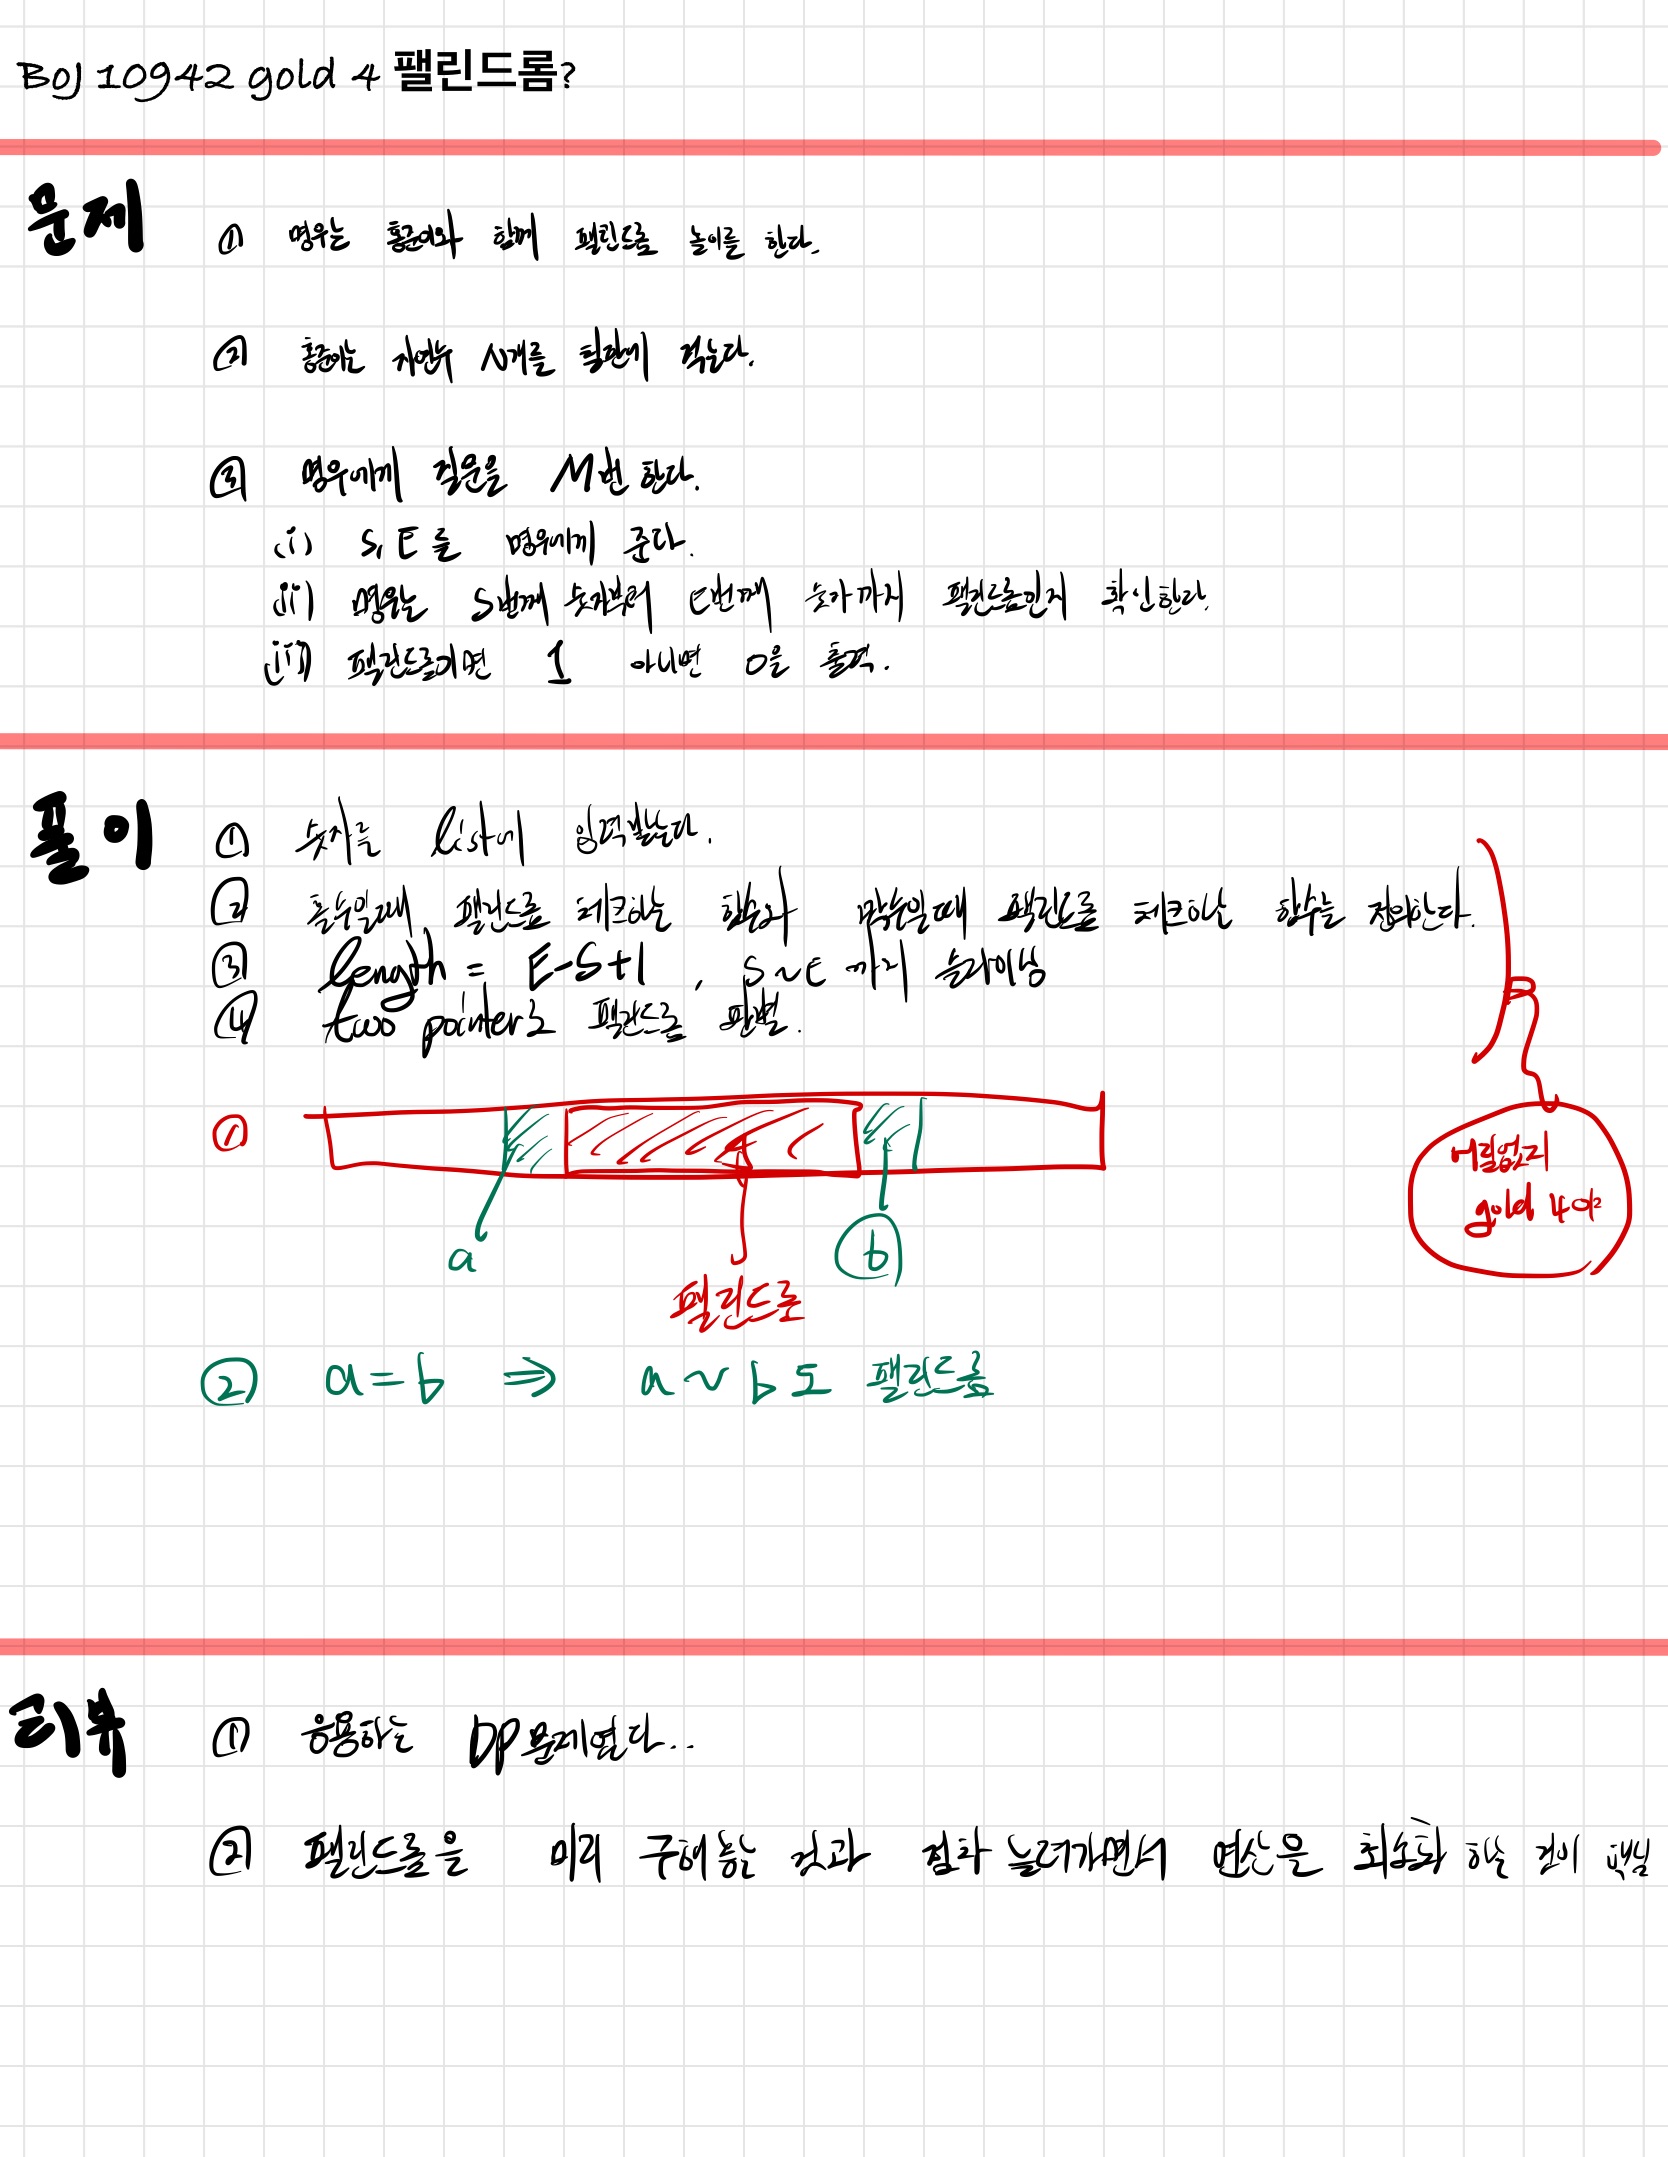 BOJ 10942 gold 4 팰린드롬?
문제
① 명우는 홍준이와 함께 팰린드롬 놀이를 한다.
② 홍준이는 자연수 N개를 칠판에 적는다.
③ 명우에게 질문을 M번 한다.
(i) S, E를 명우에게 준다.
(ii) 명우는 S번째 숫자부터 E번째 숫자까지 팰린드롬인지 확인한다.
(iii) 팰린드롬이면 1 아니면 0을 출력.
풀이
① 숫자를 list에 입력받는다.
② 홀수일때 팰린드롬 체크하는 함수와 짝수일때 팰린드롬 체크하는 함수를 정의한다.
③ length = E-S+1, S~E 까지 슬라이싱
④ two pointer로 팰린드롬 판별.
어림없지
gold 4야
①
a
b
팰린드롬
② a=b ⇒ a~b도 팰린드롬
리뷰
① 응용하는 DP문제였다..
② 팰린드롬을 미리 구해놓는 것과 점차 늘려가면서 연산을 최소화 하는 것이 핵심